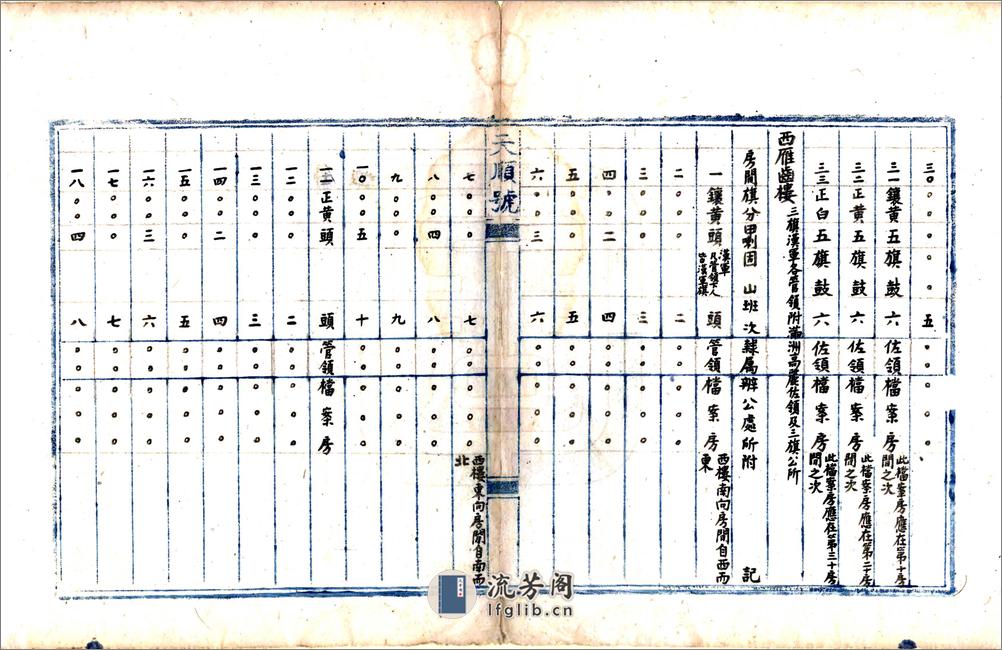 三〇 〇 〇 〇 〇 五 〇 〇 〇 〇 〇
三一 鑲黃五旗鼓 六 佐領檔案房 此檔案房應在第十房間之次
三二 正黃五旗鼓 六 佐領檔案房 此檔案房應在第二十房間之次
三三 正白五旗鼓 六 佐領檔案房 此檔案房應在第三十房間之次
西雁齒樓 三旗漢軍各管領附滿洲高麗佐領及三旗公所
房間旗分甲喇因 山班次隸屬辦公處所附 記
一 鑲黃頭 漢軍及管領下人皆漢軍旗 頭 管領檔案房 西樓南向房間自西而東
二 〇 〇 〇 二 〇 〇 〇 〇 〇
三 〇 〇 〇 三 〇 〇 〇 〇 〇
四 〇 〇 二 四 〇 〇 〇 〇 〇
五 〇 〇 〇 五 〇 〇 〇 〇 〇
六 〇 〇 三 六 〇 〇 〇 〇 〇
天順號
七 〇 〇 〇 七 〇 〇 〇 〇 〇 西樓東向房間自南而北
八 〇 〇 四 八 〇 〇 〇 〇 〇
九 〇 〇 〇 九 〇 〇 〇 〇 〇
一〇 〇 〇 五 十 〇 〇 〇 〇 〇
一一 正黃頭 頭 管領檔案房
一二 〇 〇 〇 二 〇 〇 〇 〇 〇
一三 〇 〇 〇 三 〇 〇 〇 〇 〇
一四 〇 〇 二 四 〇 〇 〇 〇 〇
一五 〇 〇 〇 五 〇 〇 〇 〇 〇
一六 〇 〇 三 六 〇 〇 〇 〇 〇
一七 〇 〇 〇 七 〇 〇 〇 〇 〇
一八 〇 〇 四 八 〇 〇 〇 〇 〇
流芳阁
lfglib.cn